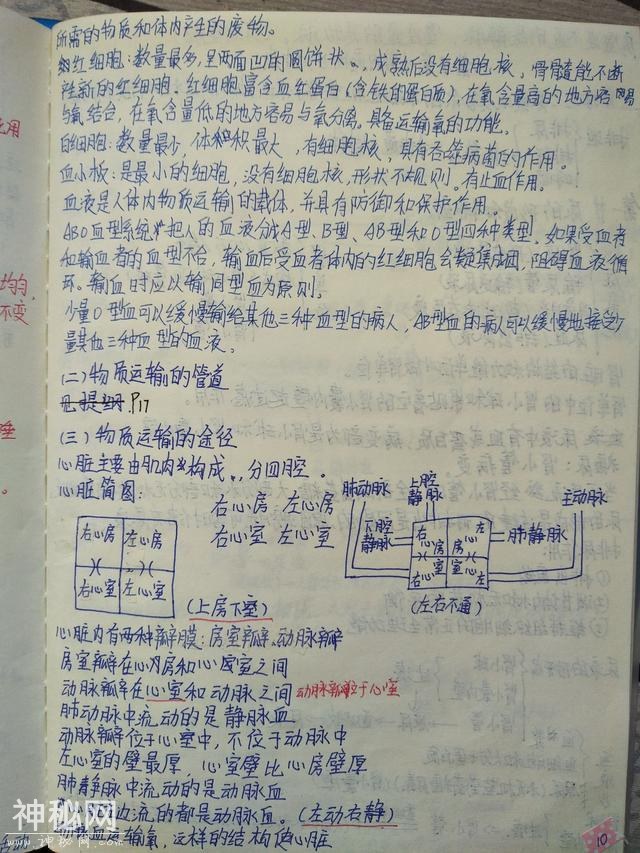 所需的物质和体内产生的废物。
红细胞：数量最多，呈两面凹的圆饼状。，成熟后没有细胞核，骨髓能不断
新的红细胞。红细胞富含血红蛋白(含铁的蛋白质)，在氧含量高的地方容易
与氧结合，在氧含量低的地方容易与氧分离。具备运输氧的功能。
白细胞：数量最少，体积最大，有细胞核，具有吞噬病菌的作用。
血小板：是最小的细胞，没有细胞核，形状不规则。有止血作用。
血液是人体内物质运输的载体，并具有防御和保护作用。
ABO血型系统把人的血液分成A型、B型、AB型和O型四种类型。如果受血者
和输血者的血型不合，输血后受血者体内的红细胞会凝集成团，阻碍血液循
环。输血时应以输同型血为原则。
少量O型血可以缓慢输给其他三种血型的病人，AB型血的病人可以缓慢地接受少
量其他三种血型的血液。
(二)物质运输的管道
见提纲 P17
(三)物质运输的途径
心脏主要由肌肉构成。，分四腔。
心脏简图:
右心房 左心房
右心室 左心室
右心房 左心房
右心室 左心室
(上房下室)
肺动脉
上腔
静脉
主动脉
下腔
静脉
肺静脉
右
心房
房
心
左
右
心室
室
心
左
(左右不通)
心脏内有两种瓣膜：房室瓣、动脉瓣
房室瓣在心房和心室之间
动脉瓣在心室和动脉之间 动脉瓣位于心室
肺动脉中流动的是静脉血
动脉瓣位于心室中，不位于动脉中
左心室的壁最厚，心室壁比心房壁厚
肺静脉中流动的是动脉血
流的都是动脉血。(左动右静)
血运输氧，这样的结构使心脏
神秘网
10
均匀，
不变
用